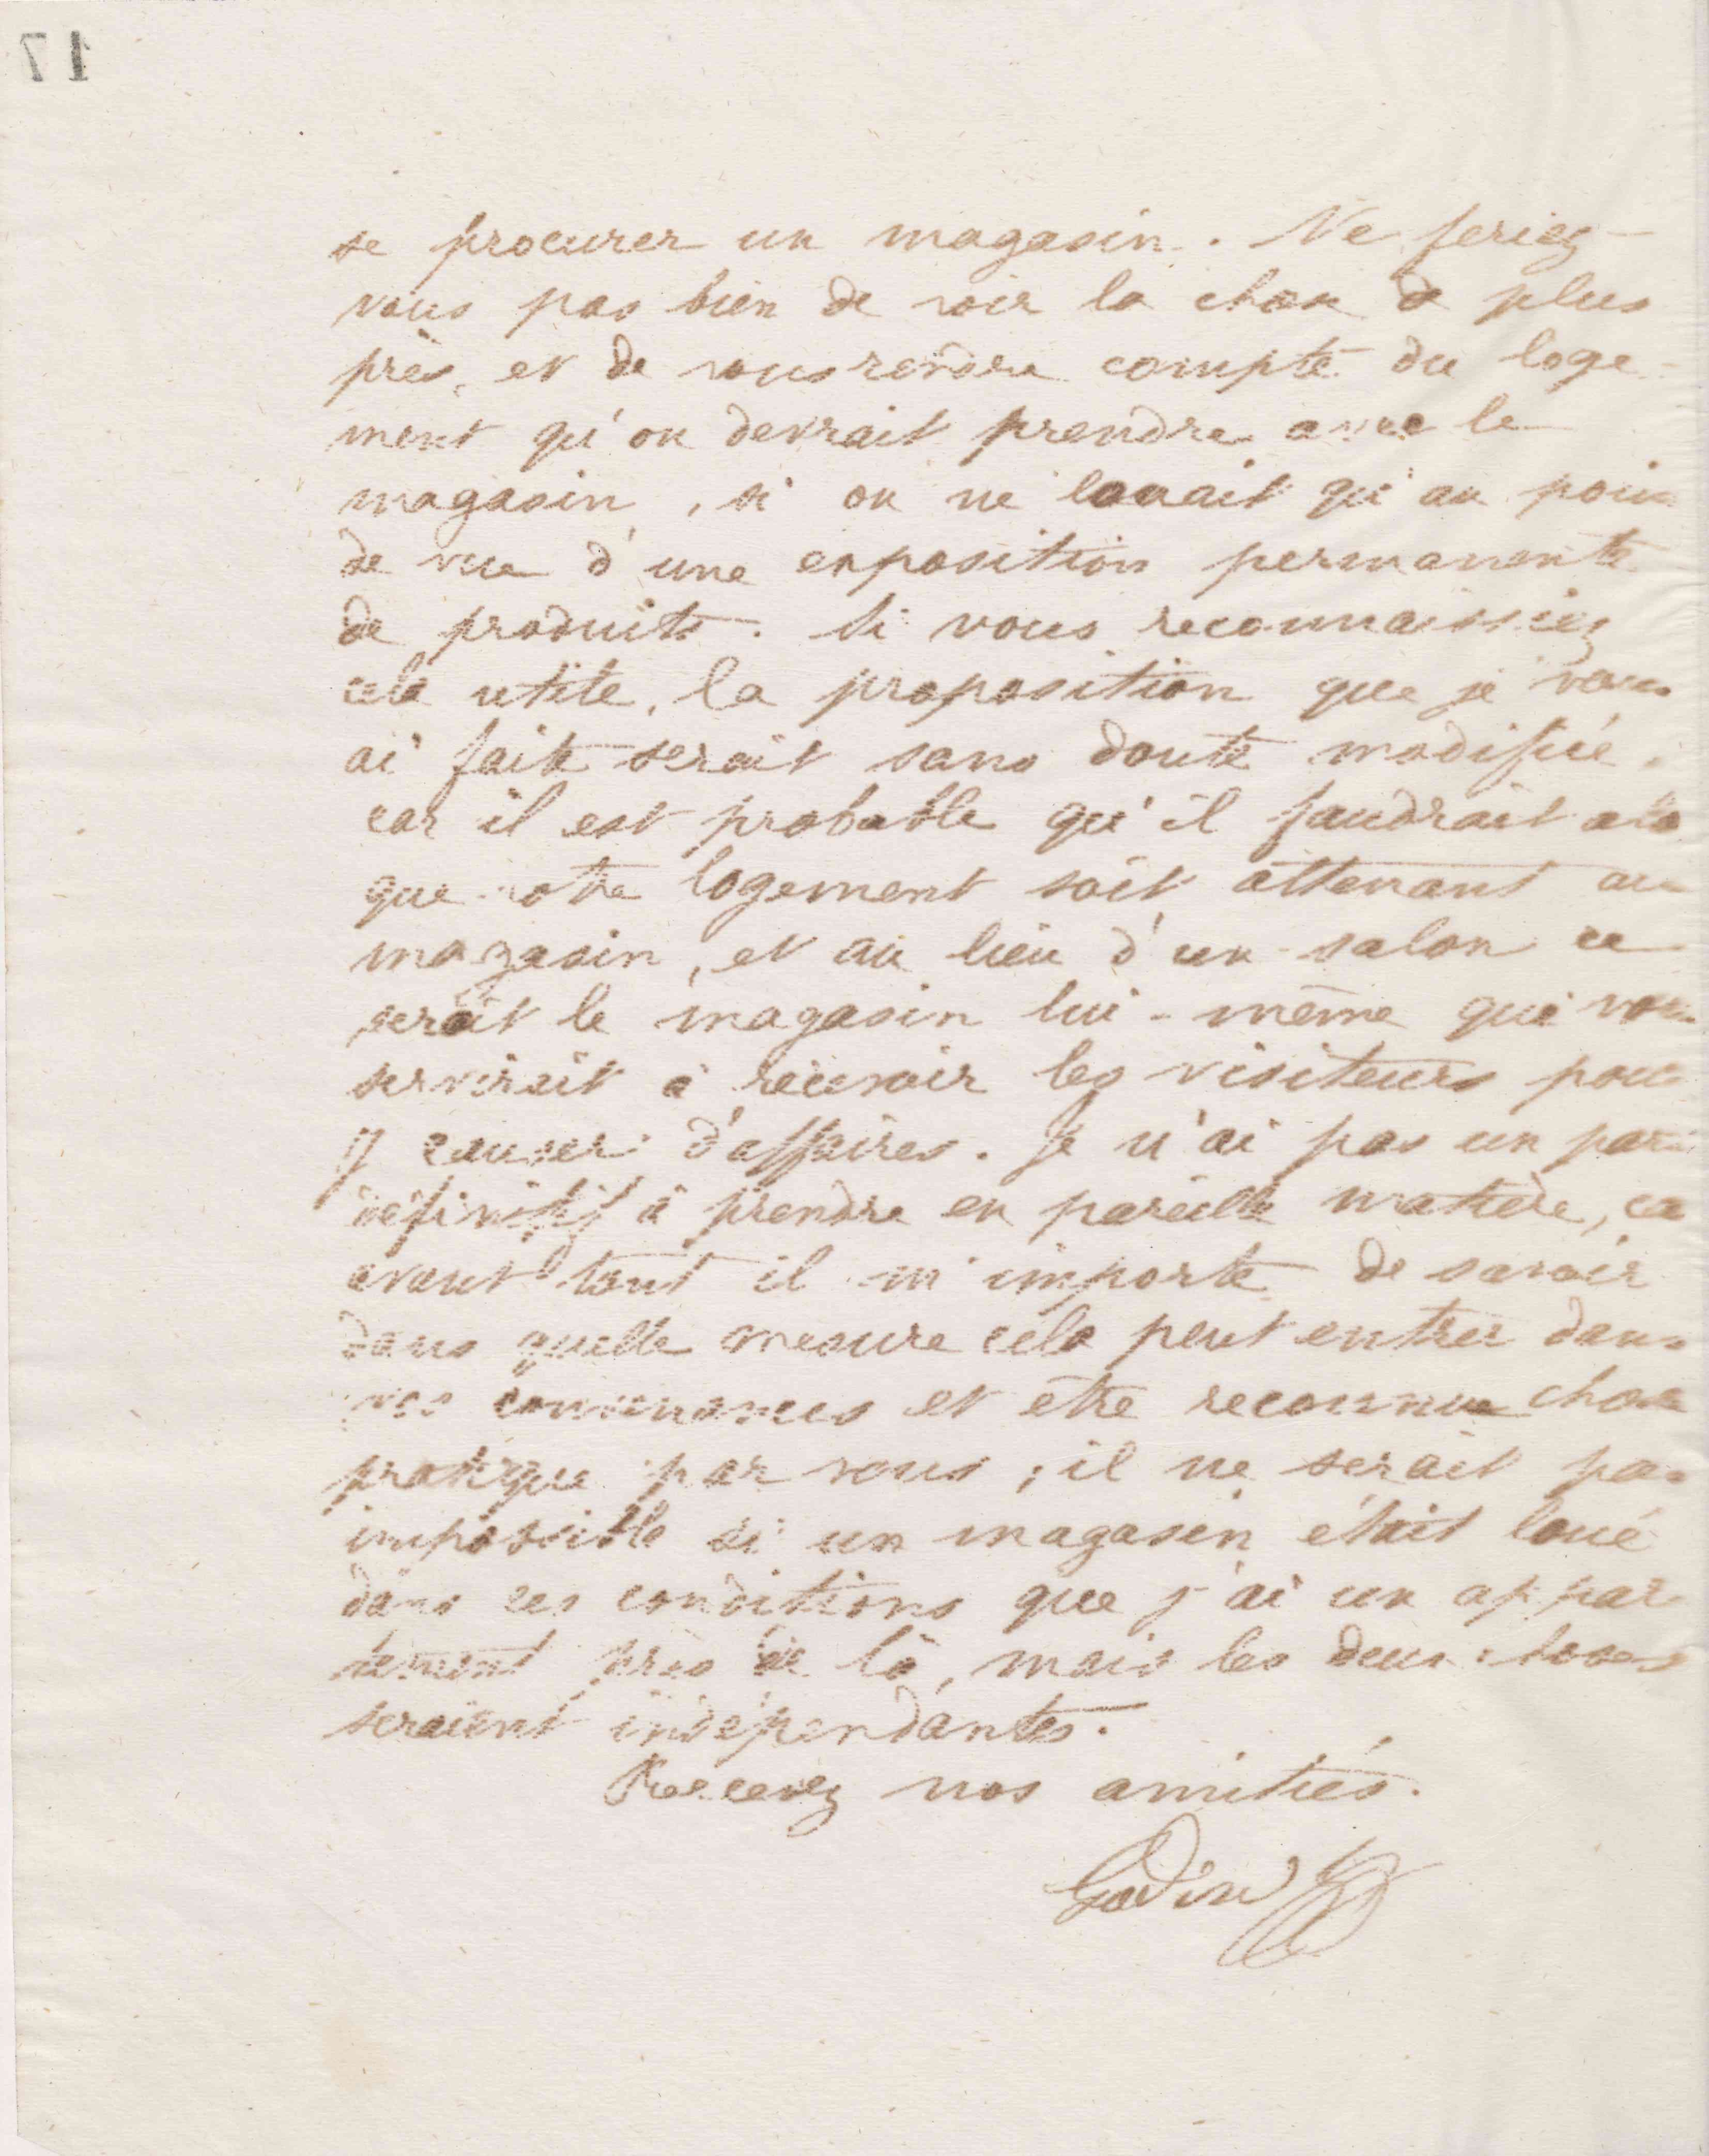 17
se procurer un magasin. Ne feriez-
vous pas bien de voir la chose de plus
près, et de vous rendre compte du loge-
ment qu'on devrait prendre avec le
magasin, si on ne louait qu'au poin
de vue d'une exposition permanente
de produits. Si vous reconnaissiez
cela utile, la proposition que je vous
ai faite serait sans doute modifiée,
car il est probable qu'il faudrait alo
que votre logement soit attenant au
magasin, et au lieu d'un salon ce
serait le magasin lui-même qui vous
servirait à recevoir les visiteurs pour
y causer d'affaires. Je n'ai pas un parti
définitif à prendre en pareille matière, ca
avant tout il m'importe de savoir
dans quelle mesure cela peut entrer dans
vos convenances et être reconnue chose
pratique par vous ; il ne serait pas
impossible si un magasin était loué
dans ces conditions que j'ai un appar
tement près de là, mais les deux choses
seraient indépendantes.
Recevez nos amitiés.
Godin